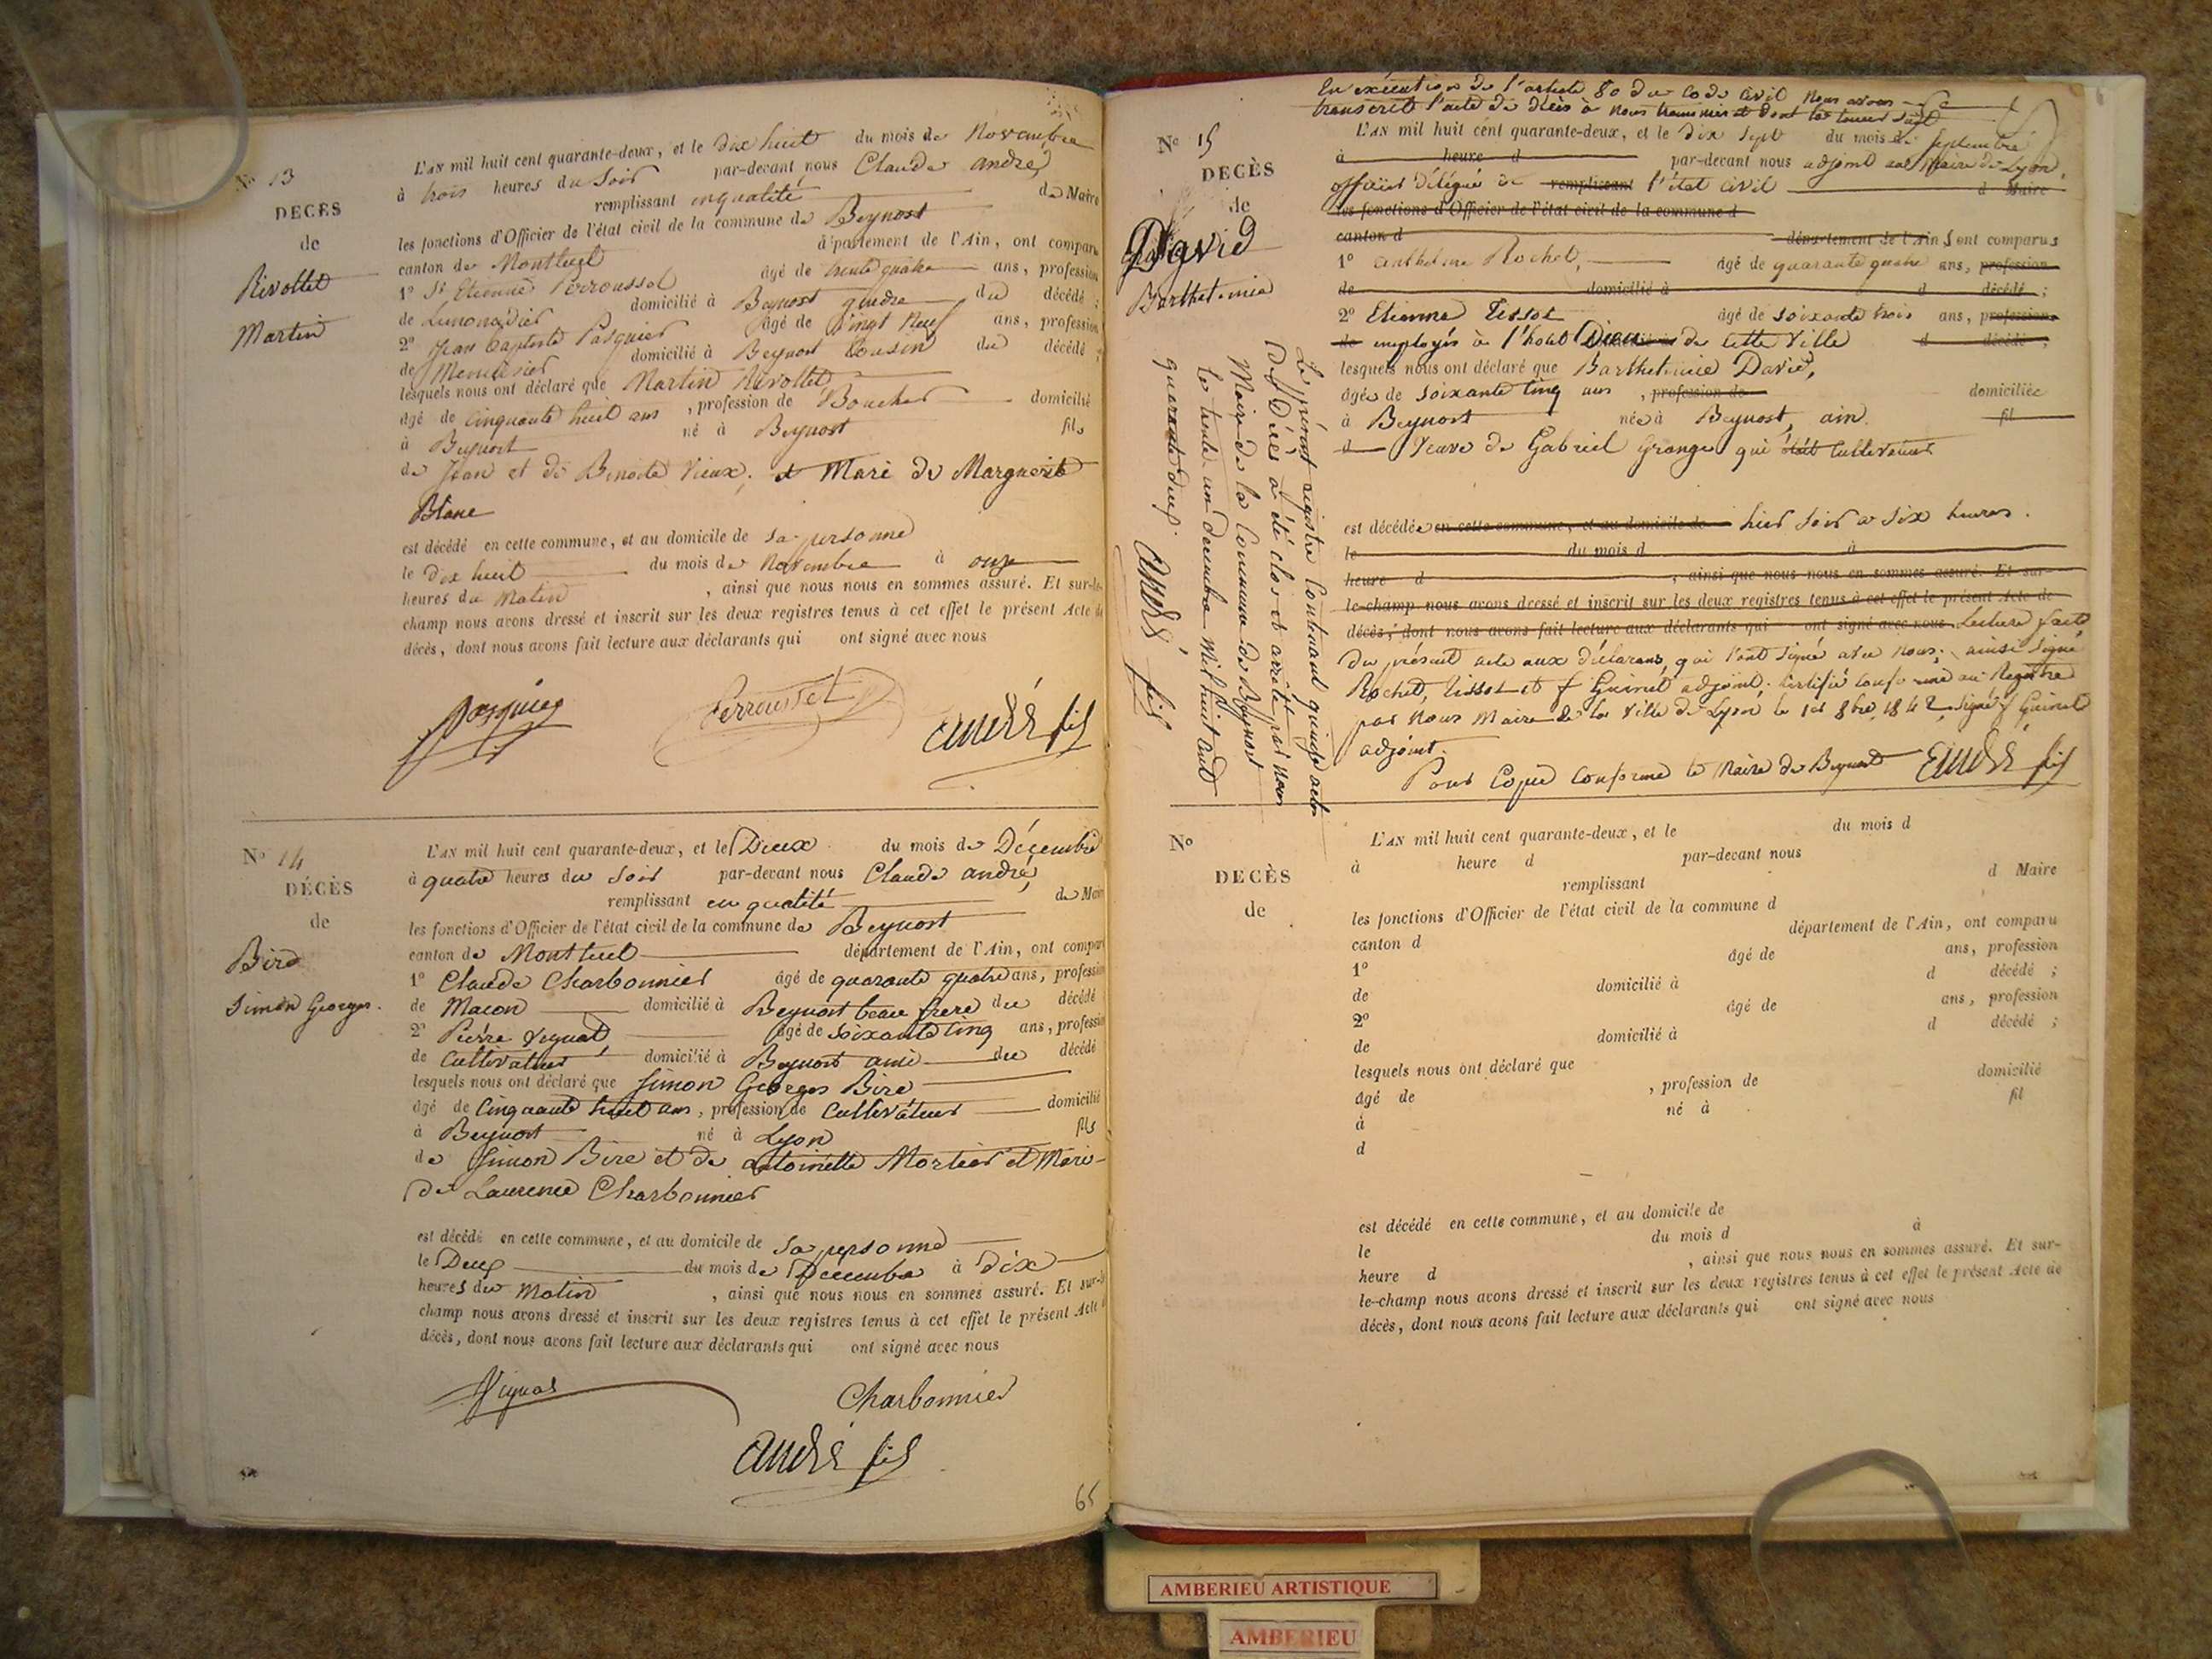 N° 13
DÉCÈS
de
Rivollet
Martin
L'AN mil huit cent quarante-deux, et le dix huit du mois de Novembre
à trois heures du Soir par-devant nous Claude andré,
remplissant en qualité de Maire
les fonctions d'Officier de l'état civil de la commune de Beynost
canton de Montluel département de l'Ain, ont comparu
1° St Etienne Perrousset âgé de trente quatre ans, profession
de Limonadier domicilié à Beynost gendre du décédé ;
2° Jean Baptiste Pasquier âgé de Vingt Neuf ans, profession
de Menuisier domicilié à Beynost Cousin du décédé ;
lesquels nous ont déclaré que Martin Rivollet
âgé de Cinquante huit ans, profession de Boucher domicilié
à Beynost né à Beynost fils
de Jean et de Benoite Vieux, et Mari de Marguerite
Blanc
est décédé en cette commune, et au domicile de sa personne
le dix huit du mois de Novembre à onze
heures du Matin, ainsi que nous nous en sommes assuré. Et sur-le-
champ nous avons dressé et inscrit sur les deux registres tenus à cet effet le présent Acte de
décès, dont nous avons fait lecture aux déclarants qui ont signé avec nous
Pasquier Perrousset andré fils
N° 14
DÉCÈS
de
Bire
Simon Georges.
L'AN mil huit cent quarante-deux, et le Deux du mois de Décembre
à quatre heures du Soir par-devant nous Claude andré,
remplissant en qualité de Maire
les fonctions d'Officier de l'état civil de la commune de Beynost
canton de Montluel département de l'Ain, ont comparu
1° Claude Charbonnier âgé de quarante quatre ans, profession
de Macon domicilié à Beynost beau frere du décédé
2° Pierre Vignat âgé de Soixante Cinq ans, profession
de Cultivateur domicilié à Beynost ami du décédé
lesquels nous ont déclaré que Simon Georges Bire
âgé de Cinquante huit ans, profession de Cultivateur domicilié
à Beynost né à Lyon fils
de Simon Bire et de Antoinette Mortier et Mari
de Laurence Charbonnier
est décédé en cette commune, et au domicile de Sa personne
le Deux du mois de Décembre à Dix
heures du Matin, ainsi que nous nous en sommes assuré. Et sur-le-
champ nous avons dressé et inscrit sur les deux registres tenus à cet effet le présent Acte
décès, dont nous avons fait lecture aux déclarants qui ont signé avec nous
Vignat Charbonnier
andré fils
65
En exécution de l'article 80 du code civil Nous avons
transcrit l'acte de décès à nous transmis et dont la teneur suit
N° 15
DÉCÈS
de
David
Barthelemie
L'AN mil huit cent quarante-deux, et le Dix Sept du mois de Septembre
à heure d par-devant nous adjoint au Maire de Lyon,
officier délégué de remplissant l'état civil d Maire
les fonctions d'Officier de l'état civil de la commune d
canton d département de l'Ain Sont comparus
1° anthelme Rochet, âgé de quarante quatre ans, profession
de domicilié à d décédé ;
2° Etienne Tissot âgé de soixante trois ans, profession
de employés à l'hotel Dieu de cette Ville d décédé ;
lesquels nous ont déclaré que Barthelemie David,
âgée de soixante cinq ans, profession de domiciliée
à Beynost née à Beynost, ain. fil
d Veuve de Gabriel Granger qui était Cultivateur
est décédée en cette commune, et au domicile de hier soir à six heures.
le du mois d à
heure d, ainsi que nous nous en sommes assuré. Et sur-
le-champ nous avons dressé et inscrit sur les deux registres tenus à cet effet le présent Acte de
décès, dont nous avons fait lecture aux déclarants qui ont signé avec nous Lecture faite
du présent acte aux déclarans, qui l'ont signé avec nous, ainsi signé
Rochet, Tissot et f Guinet adjoint. Certifié conforme au Registre
par Nous Maire de la Ville de Lyon le 1er 8bre 1842, signé f Guinet
adjoint.
Pour Copie Conforme le Maire de Beynost andré fils
Le présent registre Contenant quinze actes
de Décès a été clos et arrêté par nous
Maire de la Commune de Beynost
le trente un decembre Mil huit cent
quarante deux.
andré fils
N°
DÉCÈS
de
L'AN mil huit cent quarante-deux, et le du mois d
à heure d par-devant nous
remplissant d Maire
les fonctions d'Officier de l'état civil de la commune d
canton d département de l'Ain, ont comparu
1° âgé de ans, profession
de domicilié à d décédé ;
2° âgé de ans, profession
de domicilié à d décédé ;
lesquels nous ont déclaré que
âgé de, profession de domicilié
à né à fil
d
est décédé en cette commune, et au domicile de
le du mois d à
heure d, ainsi que nous nous en sommes assuré. Et sur-
le-champ nous avons dressé et inscrit sur les deux registres tenus à cet effet le présent Acte de
décès, dont nous avons fait lecture aux déclarants qui ont signé avec nous
AMBERIEU ARTISTIQUE
AMBERIEU